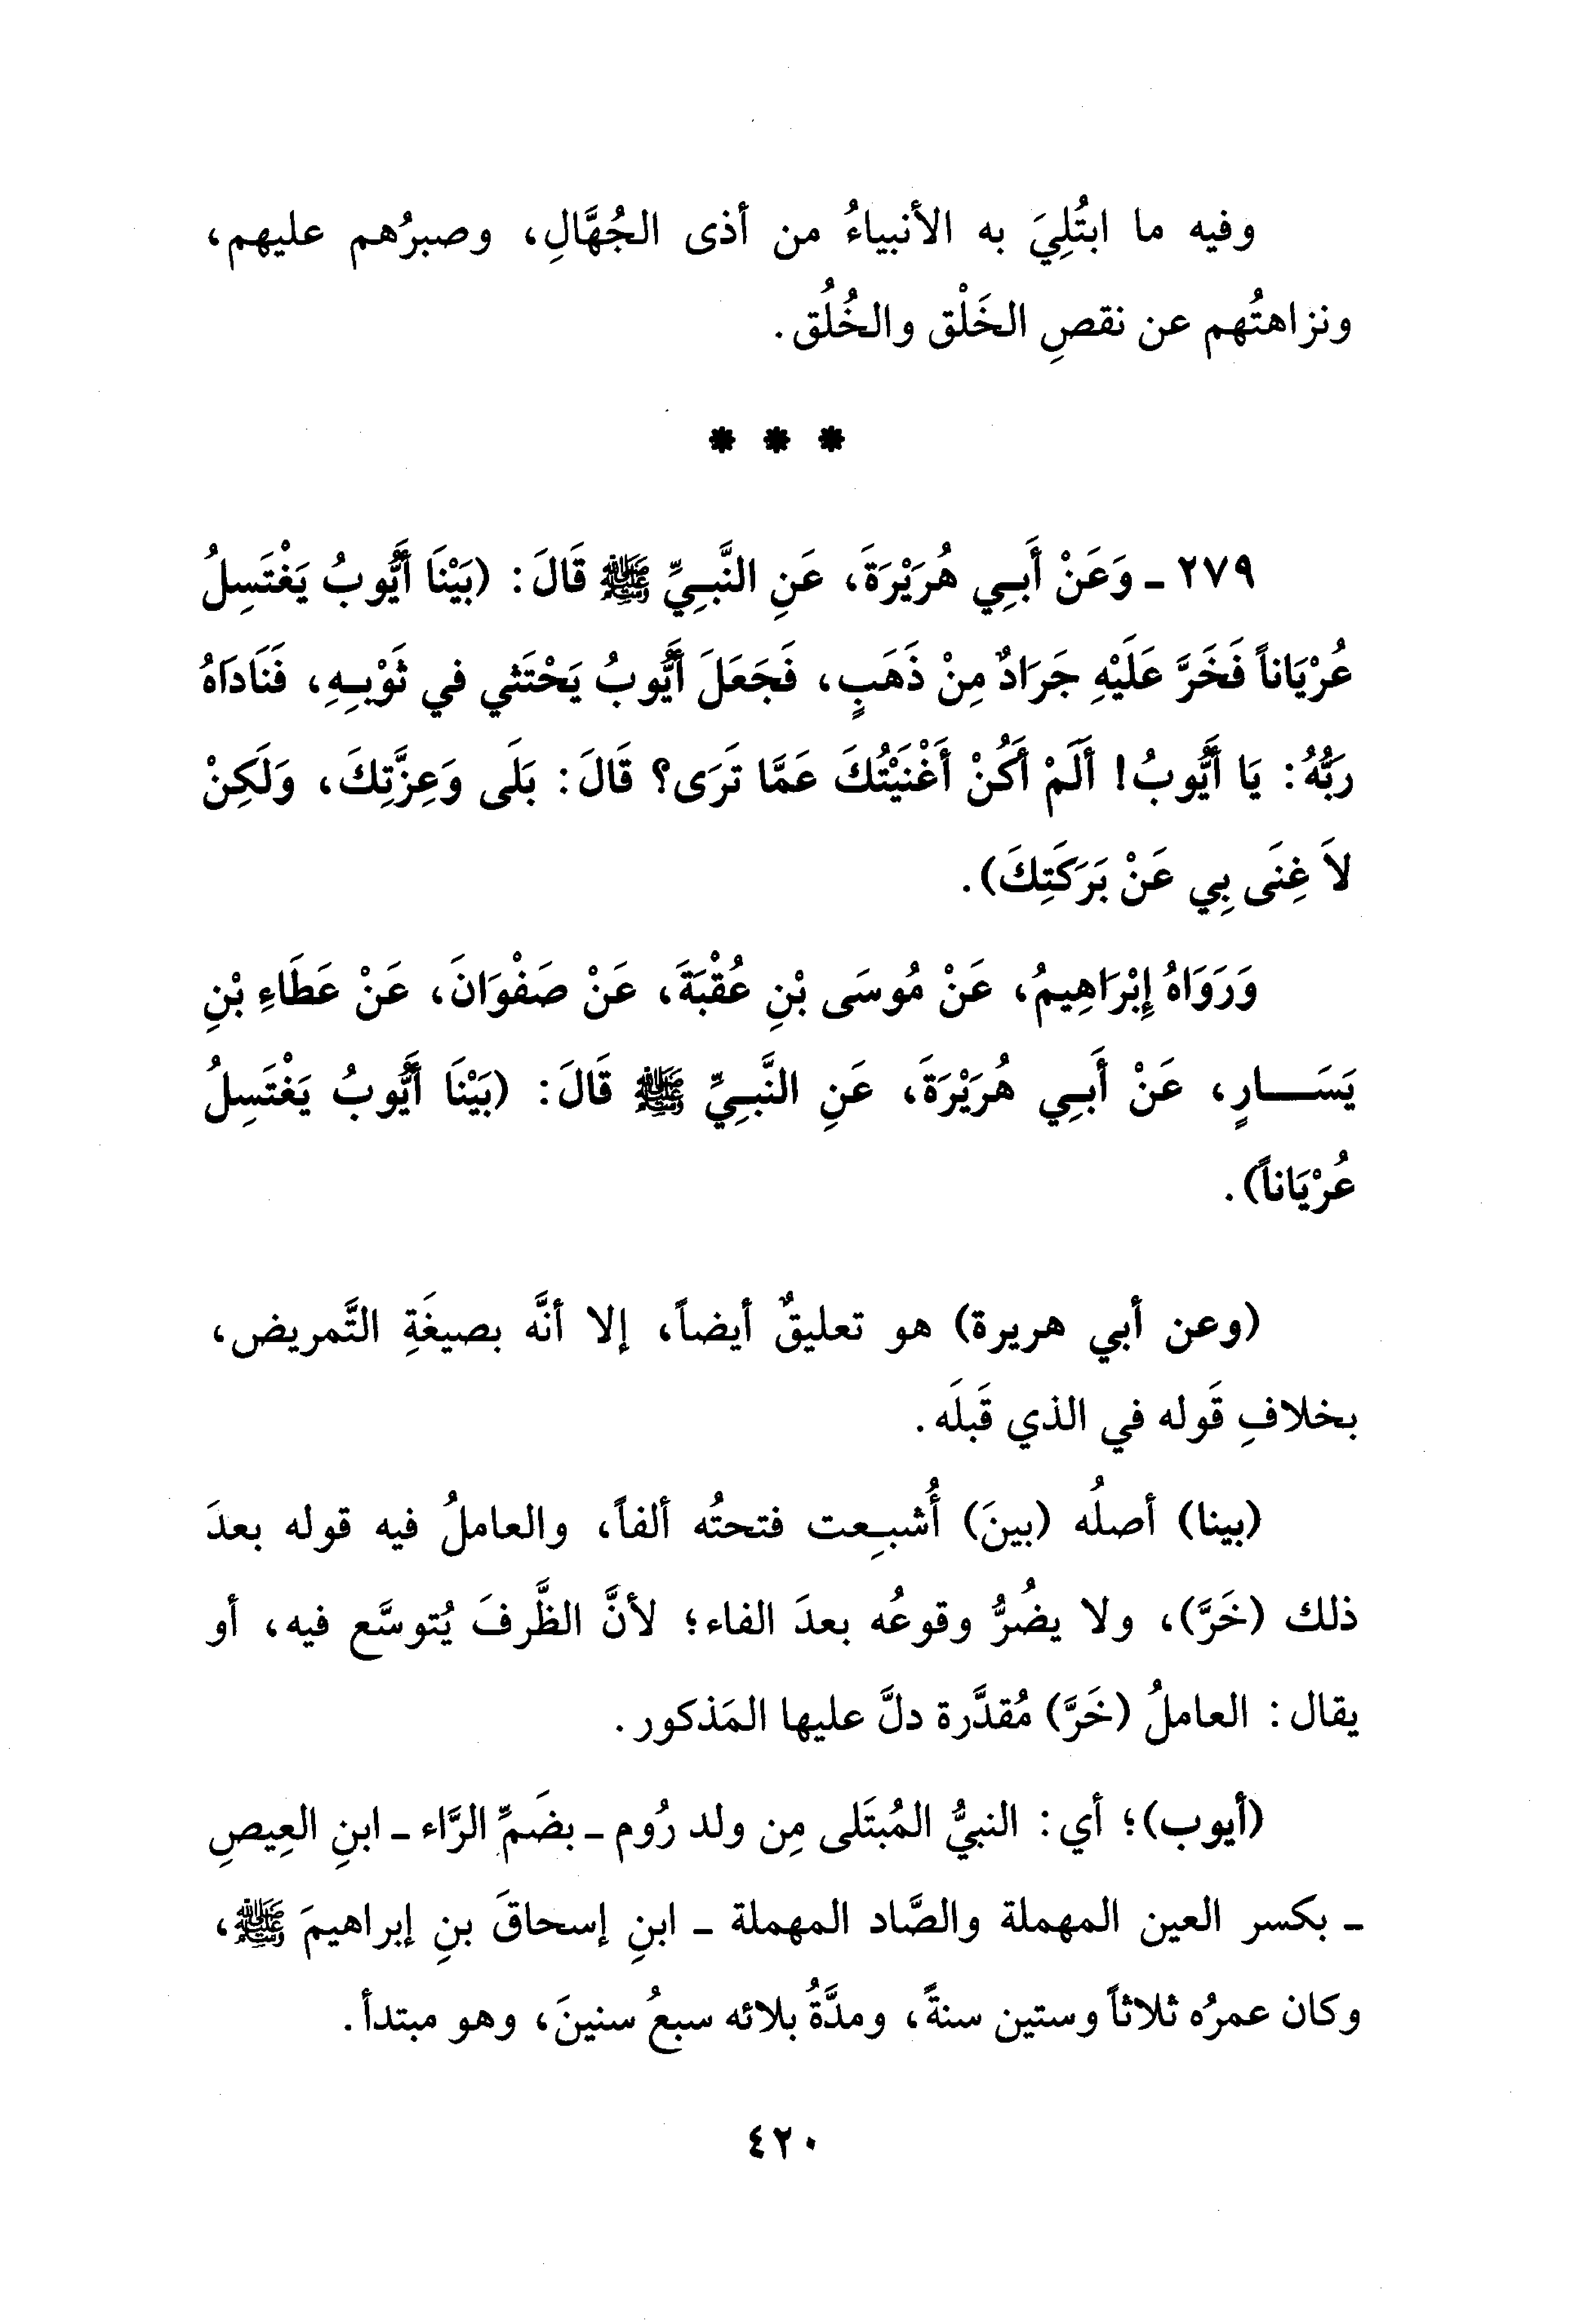 وفيه ما ابتُلِيَ به الأنبياءُ من أذى الجُهَّالِ، وصبرُهم عليهم،
ونزاهتُهم عن نقصِ الخَلْق والخُلُق.
* * *
٢٧٩ ـ وَعَنْ أَبِي هُرَيْرَةَ، عَنِ النَّبِيِّ ﷺ قَالَ: (بَيْنَا أَيُّوبُ يَغْتَسِلُ
عُرْيَاناً فَخَرَّ عَلَيْهِ جَرَادٌ مِنْ ذَهَبٍ، فَجَعَلَ أَيُّوبُ يَحْتَثي في ثَوْبِهِ، فَنَادَاهُ
رَبُّهُ: يَا أَيُّوبُ! أَلَمْ أَكُنْ أَغْنَيْتُكَ عَمَّا تَرَى؟ قَالَ: بَلَى وَعِزَّتِكَ، وَلَكِنْ
لاَ غِنَى بِي عَنْ بَرَكَتِكَ).
وَرَوَاهُ إِبْرَاهِيمُ، عَنْ مُوسَى بْنِ عُقْبَةَ، عَنْ صَفْوَانَ، عَنْ عَطَاءِ بْنِ
يَسَـــارٍ، عَنْ أَبِي هُرَيْرَةَ، عَنِ النَّبِيِّ ﷺ قَالَ: (بَيْنَا أَيُّوبُ يَغْتَسِلُ
عُرْيَاناً).
(وعن أبي هريرة) هو تعليقٌ أيضاً، إلا أنَّه بصيغَةِ التَّمريض،
بخلافِ قَوله في الذي قَبلَه.
(بينا) أصلُه (بينَ) أُشبِعت فتحتُه ألفاً، والعاملُ فيه قوله بعدَ
ذلك (خَرَّ)، ولا يضُرُّ وقوعُه بعدَ الفاء؛ لأنَّ الظَّرفَ يُتوسَّع فيه، أو
يقال: العاملُ (خَرَّ) مُقدَّرة دلَّ عليها المَذكور.
(أيوب)؛ أي: النبيُّ المُبتَلى مِن ولد رُوم ـ بضَمِّ الرَّاء ـ ابنِ العِيصِ
ـ بكسر العين المهملة والصَّاد المهملة ـ ابنِ إسحاقَ بنِ إبراهيمَ ﷺ،
وكان عمرُه ثلاثاً وستين سنةً، ومدَّةُ بلائه سبعُ سنينَ، وهو مبتدأ.
٤٢٠